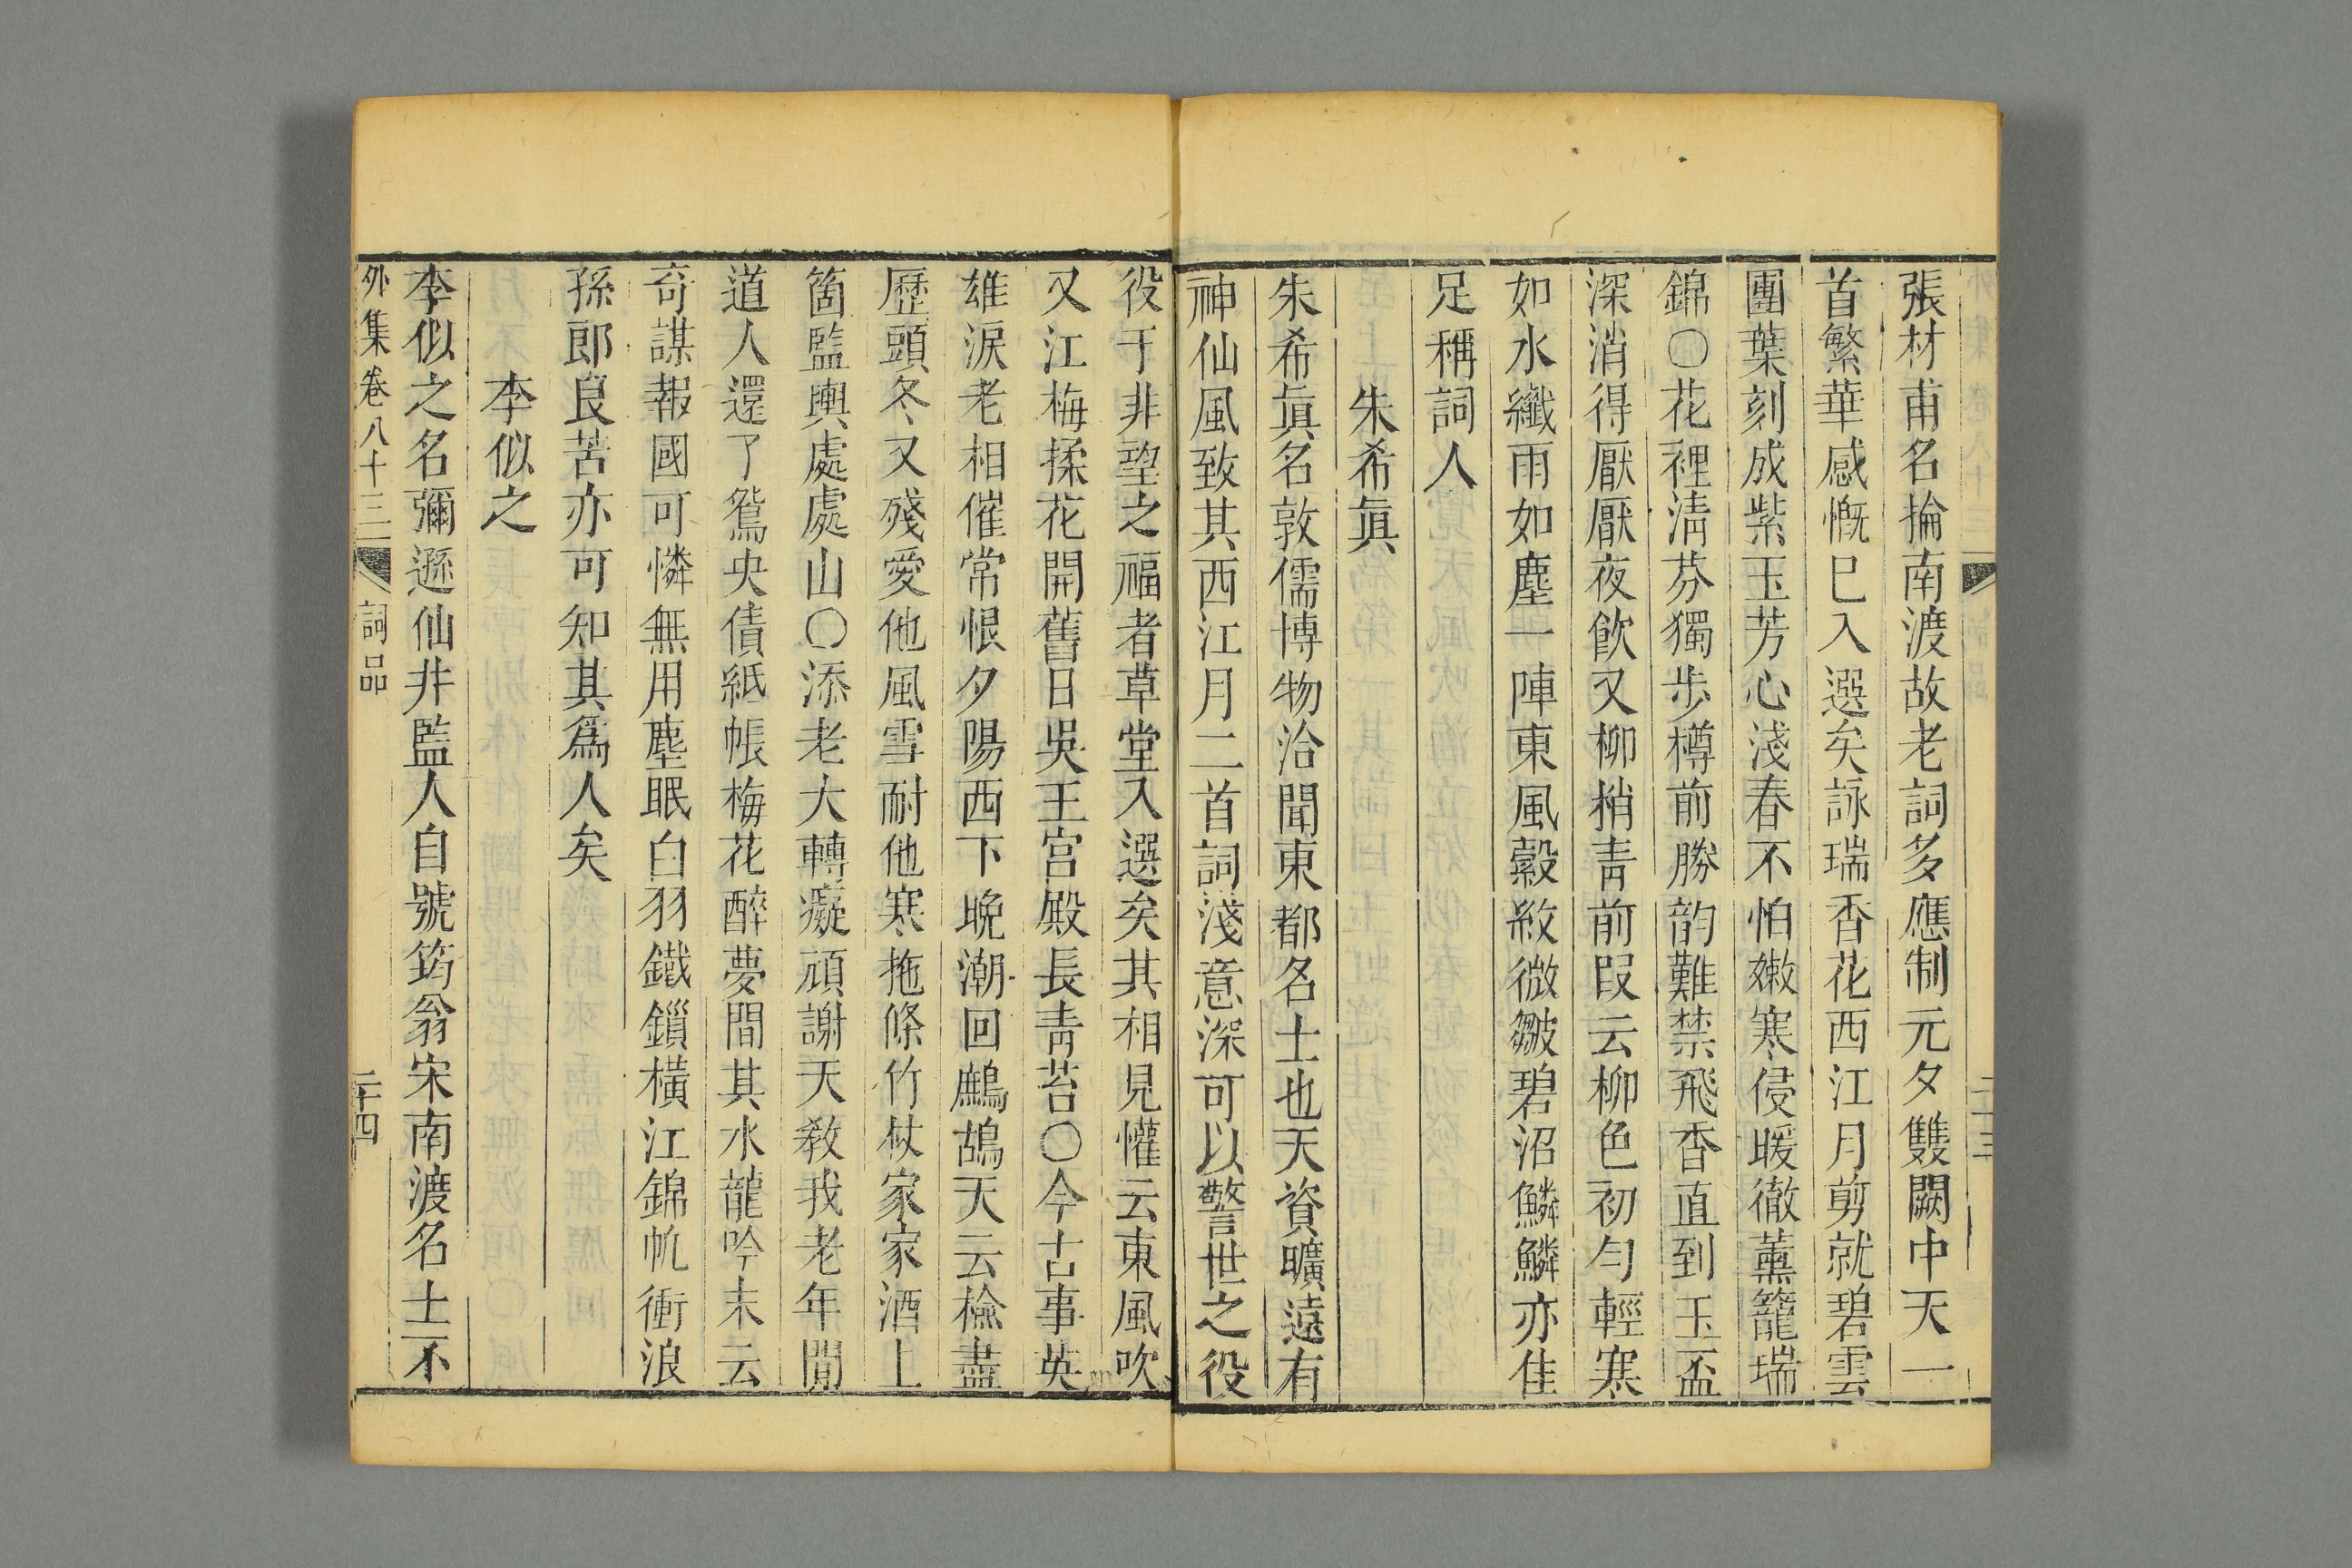 張材甫名掄南渡故老詞多應制元夕雙闕中天一
首繁華感慨巳入選矣詠瑞香花西江月剪就碧雲
團葉刻成紫玉芳心淺春不怕嫩寒侵暖徹薰籠瑞
錦〇花裡淸芬獨步樽前勝韵難禁飛香直到玉盃
深消得厭厭夜飮又柳梢靑前叚云柳色初勻輕寒
如水纖雨如塵一陣東風縠紋微皺碧沼鱗鱗亦佳
足稱詞人
朱希眞
朱希眞名敦儒博物洽聞東都名士也天資曠遠有
神仙風致其西江月二首詞淺意深可以警世之役
役于非望之福者草堂入選矣其相見懽云東風吹
又江梅揉花開舊日吳王宮殿長靑苔〇今古事英
雄淚老相催常恨夕陽西下晩潮回鷓鴣天云檢盡
歷頭冬又殘愛他風雪耐他寒拖條竹杖家家酒上
箇監輿處處山〇添老大轉癡頑謝天敎我老年閒
道人還了鴛央債紙帳梅花醉夢間其水龍吟末云
奇謀報國可憐無用塵眠白羽鐵鎖橫江錦帆衝浪
孫郎良苦亦可知其爲人矣
李似之
李似之名彌遜仙井監人自號筠翁宋南渡名士不
外集卷八十三 詞品 二十四